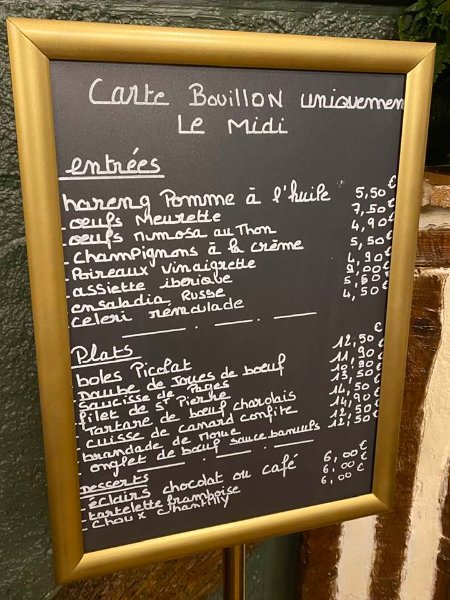 Carte Bouillon uniquemen
Le Midi
entrées
hareng Pomme à l'huile 5,50€
- oeufs Meurette 7,50
- oeufs mimosa au Thon 4,90€
- champignons à la crème 5,50
- Poireaux vinaigrette 4,90€
- assiette iberique 9,00€
- ensaladia Russe 5,50
- celeri remoulade 4,50€
Plats
boles Picolat 12,50€
Daube de Joues de boeuf 11,90
- Saucisse de Pages 10,90€
- filet de St Pierre 13,50
- Tartare de bœuf charolais 14,50
- cuisse de canard confite 14,90€
- brandade de morue 12,50
- onglet de bœuf sauce 12,50€
Desserts
- éclairs chocolat ou café 6,00€
- tartelette framboise 6,00€
- choux chantilly 6,00